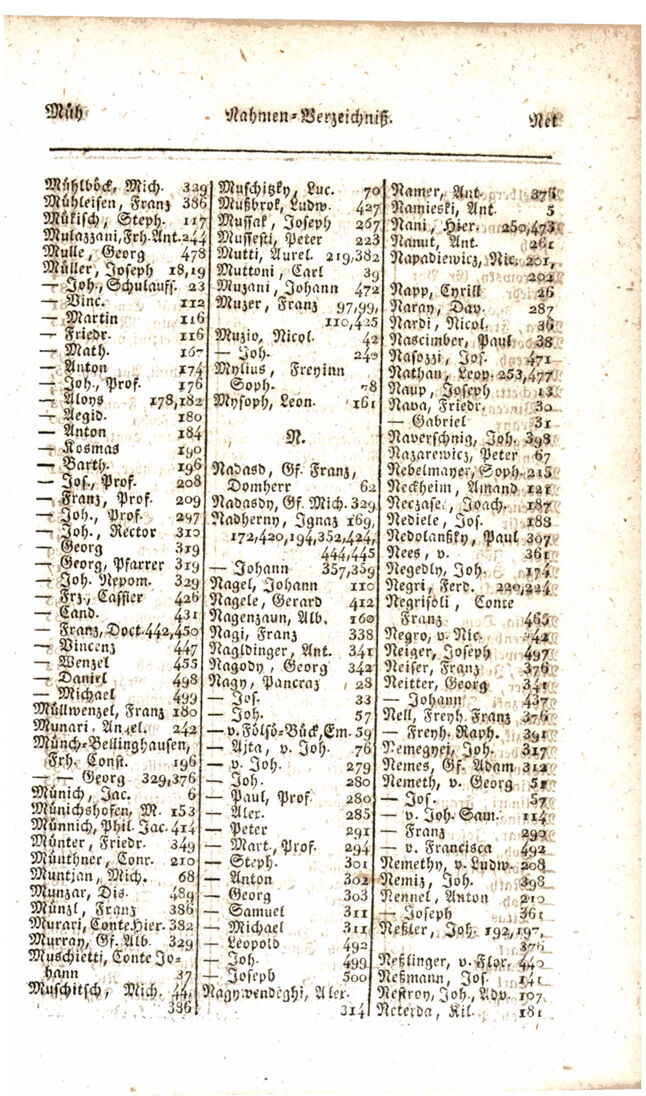 Müh Nahmen-Verzeichniß. Net
Mühlböck, Mich. 329
Mühleisen, Franz 386
Mükisch, Steph. 117
Mulazzani, Frh. Ant. 244
Mulle, Georg 478
Müller, Joseph 18,19
— Joh., Schulauff. 23
— Vinc. 112
— Martin 116
— Friedr. 116
— Math. 167
— Anton 174
— Joh., Prof. 176
— Aloys 178,182
— Aegid. 180
— Anton 184
— Kosmas 190
— Barth. 196
— Jos., Prof. 208
— Franz, Prof. 209
— Joh., Prof. 297
— Joh., Rector 310
— Georg 319
— Georg, Pfarrer 319
— Joh. Nepom. 329
— Frz., Cassier 426
— Cand. 431
— Franz, Doct. 442,450
— Vincenz 447
— Wenzel 455
— Daniel 498
— Michael 499
Müllwenzel, Franz 180
Munari, Angel. 242
Münch-Bellinghausen,
Frh. Const. 196
— — Georg 329,376
Münich, Jac. 6
Münichshofen, M. 153
Münnich, Phil. Jac. 414
Münter, Friedr. 349
Münthner, Conr. 210
Muntjan, Mich. 68
Munzar, Dis. 489
Münzl, Franz 386
Murari, Conte Hier. 382
Murray, Gf. Alb. 329
Muschietti, Conte Jo-
hann 37
Muschitsch, Mich. 44,
386
Muschitzky, Luc. 70
Mußbrok, Ludw. 427
Mussak, Joseph 267
Mussesti, Peter 223
Mutti, Aurel. 219,382
Muttoni, Carl 39
Muzani, Johann 472
Muzer, Franz 97,99,
110,425
Muzio, Nicol. 42
— Joh. 240
Mylius, Freyinn
Soph. 78
Mysoph, Leon. 161
N.
Nadasd, Gf. Franz,
Domherr 62
Nadasdy, Gf. Mich. 329
Nadherny, Ignaz 169,
172,420,194,352,424,
444,445
— Johann 357,359
Nagel, Johann 110
Nagele, Gerard 412
Nagenzaun, Alb. 160
Nagi, Franz 338
Nagldinger, Ant. 341
Nagody, Georg 342
Nagy, Pancraz 28
— Jos. 33
— Joh. 57
— v. Fölsö-Bück, Em. 59
— Ajta, v. Joh. 76
— v. Joh. 279
— Joh. 280
— Paul, Prof. 280
— Alex. 285
— Peter 291
— Mart., Prof. 294
— Steph. 301
— Anton 302
— Georg 303
— Samuel 311
— Michael 311
— Leopold 492
— Joh. 499
— Joseph 500
Nagy wendéghi, Alex.
314
Namer, Ant. 376
Namieski, Ant. 5
Nani, Hier. 250,473
Nanut, Ant. 261
Napadiewicz, Nic. 201,
202
Napp, Cyrill 26
Naray, Dav. 287
Nardi, Nicol. 36
Nascimber, Paul 38
Nasozzi, Jos. 471
Nathan, Leop. 253,477
Naup, Joseph 13
Nava, Friedr. 30
— Gabriel 31
Naverschnig, Joh. 398
Nazarewicz, Peter 67
Nebelmayer, Soph. 215
Neckheim, Amand 121
Neczase, Joach. 187
Nediele, Jos. 188
Nedolanßky, Paul 307
Nees, v. 361
Negedly, Joh. 174
Negri, Ferd. 220,224
Negrisoli, Conte
Franz 465
Negro, v. Nic. 42
Neiger, Joseph 497
Neiser, Franz 376
Neitter, Georg 341
— Johann 437
Nell, Freyh. Franz 376
— Freyh. Raph. 391
Nemegyei, Joh. 317
Nemes, Gf. Adam 312
Nemeth, v. Georg 51
— Jos. 57
— v. Joh. Sam. 114
— Franz 290
— v. Francisca 492
Nemethy, v. Ludw. 208
Nemiz, Joh. 398
Nennel, Anton 210
— Joseph 361
Neßler, Joh. 192,197,
376
Neßlinger, v. Flor. 440
Neßmann, Jos. 141
Nestroy, Joh., Adv. 107
Neterda, Kil. 181